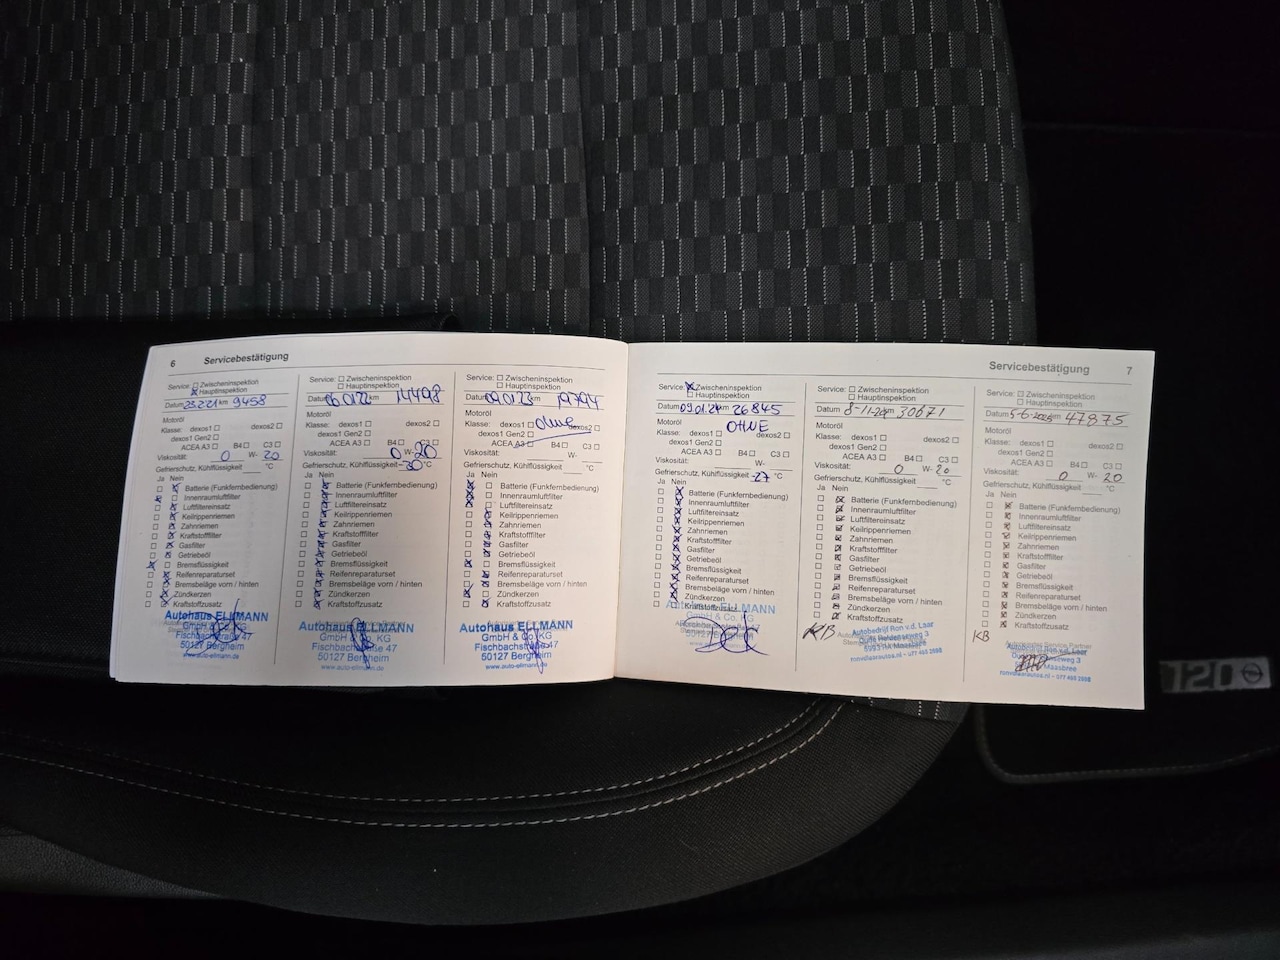 6 Servicebestätigung
Service: Zwischeninspektion
Hauptinspektion
Datum 23.2.21 km 9458
Motoröl
Klasse: dexos1 dexos2
dexos1 Gen2
ACEA A3 B4 C3
Viskosität: 0 W- 20
Gefrierschutz, Kühlflüssigkeit °C
Ja Nein
Batterie (Funkfernbedienung)
Innenraumluftfilter
Luftfiltereinsatz
Keilrippenriemen
Zahnriemen
Kraftstofffilter
Gasfilter
Getriebeöl
Bremsflüssigkeit
Reifenreparaturset
Bremsbeläge vorn / hinten
Zündkerzen
Kraftstoffzusatz
Autohaus ELLMANN
GmbH & Co. KG
Fischbachstraße 47
50127 Bergheim
www.auto-ellmann.de
Service: Zwischeninspektion
Hauptinspektion
Datum 06.01.22 km 14498
Motoröl
Klasse: dexos1 dexos2
dexos1 Gen2
ACEA A3 B4 C3
Viskosität: 0 W- 20
Gefrierschutz, Kühlflüssigkeit -30 °C
Ja Nein
Batterie (Funkfernbedienung)
Innenraumluftfilter
Luftfiltereinsatz
Keilrippenriemen
Zahnriemen
Kraftstofffilter
Gasfilter
Getriebeöl
Bremsflüssigkeit
Reifenreparaturset
Bremsbeläge vorn / hinten
Zündkerzen
Kraftstoffzusatz
Autohaus ELLMANN
GmbH & Co. KG
Fischbachstraße 47
50127 Bergheim
www.auto-ellmann.de
Service: Zwischeninspektion
Hauptinspektion
Datum 09.01.23 km 19794
Motoröl
ohne
Klasse: dexos1 dexos2
dexos1 Gen2
ACEA A3 B4 C3
Viskosität: W-
Gefrierschutz, Kühlflüssigkeit °C
Ja Nein
Batterie (Funkfernbedienung)
Innenraumluftfilter
Luftfiltereinsatz
Keilrippenriemen
Zahnriemen
Kraftstofffilter
Gasfilter
Getriebeöl
Bremsflüssigkeit
Reifenreparaturset
Bremsbeläge vorn / hinten
Zündkerzen
Kraftstoffzusatz
Autohaus ELLMANN
GmbH & Co. KG
Fischbachstraße 47
50127 Bergheim
www.auto-ellmann.de
Servicebestätigung 7
Service: Zwischeninspektion
Hauptinspektion
Datum 09.01.24 km 26845
Motoröl
OHNE
Klasse: dexos1 dexos2
dexos1 Gen2
ACEA A3 B4 C3
Viskosität: W-
Gefrierschutz, Kühlflüssigkeit -27 °C
Ja Nein
Batterie (Funkfernbedienung)
Innenraumluftfilter
Luftfiltereinsatz
Keilrippenriemen
Zahnriemen
Kraftstofffilter
Gasfilter
Getriebeöl
Bremsflüssigkeit
Reifenreparaturset
Bremsbeläge vorn / hinten
Zündkerzen
Kraftstoffzusatz
Autohaus ELLMANN
GmbH & Co. KG
Service: Zwischeninspektion
Hauptinspektion
Datum 8-11-24 km 30671
Motoröl
Klasse: dexos1 dexos2
dexos1 Gen2
ACEA A3 B4 C3
Viskosität: 0 W- 20
Gefrierschutz, Kühlflüssigkeit °C
Ja Nein
Batterie (Funkfernbedienung)
Innenraumluftfilter
Luftfiltereinsatz
Keilrippenriemen
Zahnriemen
Kraftstofffilter
Gasfilter
Getriebeöl
Bremsflüssigkeit
Reifenreparaturset
Bremsbeläge vorn / hinten
Zündkerzen
Kraftstoffzusatz
KB
Autobedrijf Ron v.d. Laar
Service: Zwischeninspektion
Hauptinspektion
Datum 5-6-2025 km 47875
Motoröl
Klasse: dexos1 dexos2
dexos1 Gen2
ACEA A3 B4 C3
Viskosität: 0 W- 20
Gefrierschutz, Kühlflüssigkeit °C
Ja Nein
Batterie (Funkfernbedienung)
Innenraumluftfilter
Luftfiltereinsatz
Keilrippenriemen
Zahnriemen
Kraftstofffilter
Gasfilter
Getriebeöl
Bremsflüssigkeit
Reifenreparaturset
Bremsbeläge vorn / hinten
Zündkerzen
Kraftstoffzusatz
KB
Autobedrijf Ron v.d. Laar
Maasbree
120